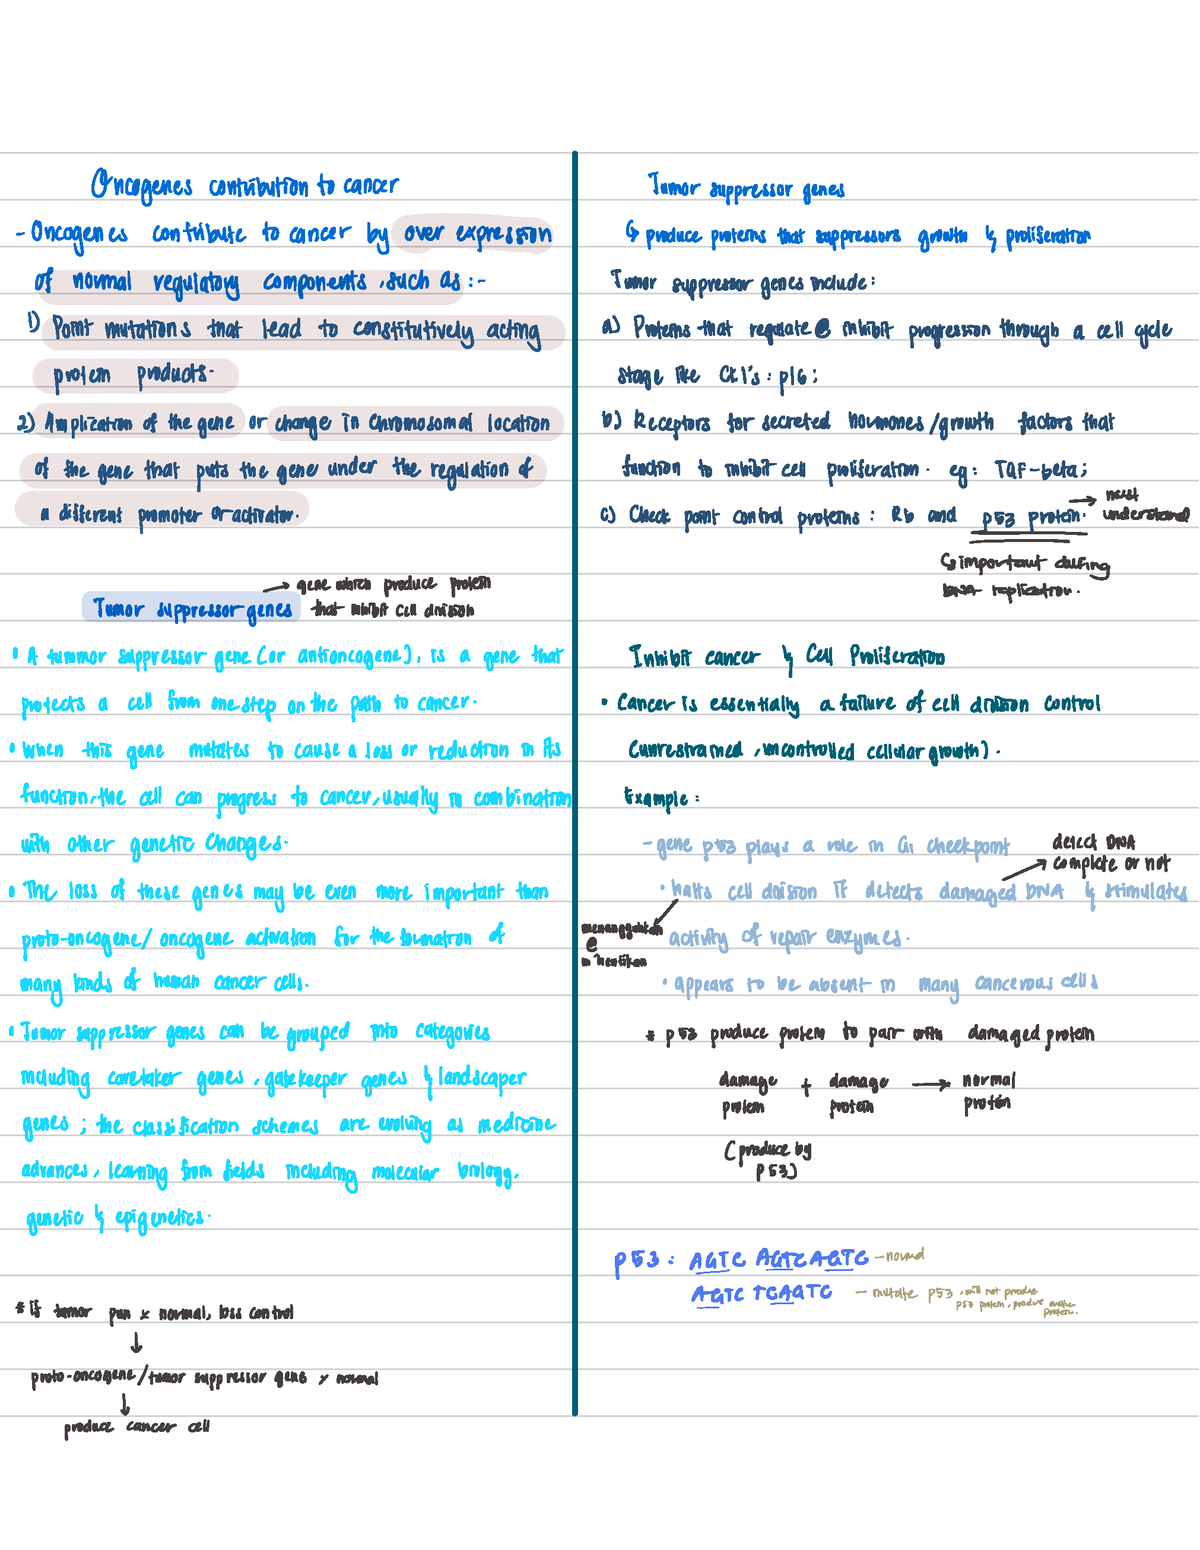 Oncogenes contribution to cancer
- Oncogenes contribute to cancer by over expression
of normal regulatory components, such as :-
1) Point mutations that lead to constitutively acting
protein products.
2) Amplization of the gene or change in chromosomal location
of the gene that puts the gene under the regulation of
a different promoter or activator.
→ gene which produce protein
Tumor suppressor genes that inhibit cell division
• A tummor suppressor gene (or antioncogene), is a gene that
protects a cell from one step on the path to cancer.
• When this gene mutates to cause a loss or reduction in its
function, the cell can progress to cancer, usually in combination
with other genetic changes.
• The loss of these genes may be even more important than
proto-oncogene/ oncogene activation for the formation of
many kinds of human cancer cells.
• Tumor suppressor genes can be grouped into categories
including caretaker genes, gatekeeper genes & landscaper
genes ; the classification schemes are evolving as medicine
advances, learning from fields including molecular biology,
genetic & epigenetics.
* if tumor pun x normal, loss control
↓
proto-oncogene/tumor suppressor gene x normal
↓
produce cancer cell
Tumor suppressor genes
↳ produce proteins that suppressors growth & proliferation
Tumor suppressor genes include :
a) Proteins that regulate @ inhibit progression through a cell cycle
stage like CKI's : p16 ;
b) Receptors for secreted hormones/growth factors that
function to inhibit cell proliferation. eg: TGF-beta;
c) Check point control proteins : Rb and p53 protein. → must
understand
↳ important during
DNA replication.
Inhibit cancer & Cell Proliferation
• Cancer is essentially a failure of cell division control
(unrestrained, uncontrolled cellular growth).
Example :
- gene p53 plays a role in G1 checkpoint
detect DNA
complete or not
• halts cell division if detects damaged DNA & stimulates
menangguhkan
@
m'hentikan
activity of repair enzymes.
• appears to be absent in many cancerous cells
* p53 produce protein to pair with damaged protein
damage protein + damage protein → normal protein
(produce by
p53)
p53 : AGTC AGTCAGTC - normal
AGTC TGAGTC - mutate p53, will not produce
p53 protein, produce another
protein.